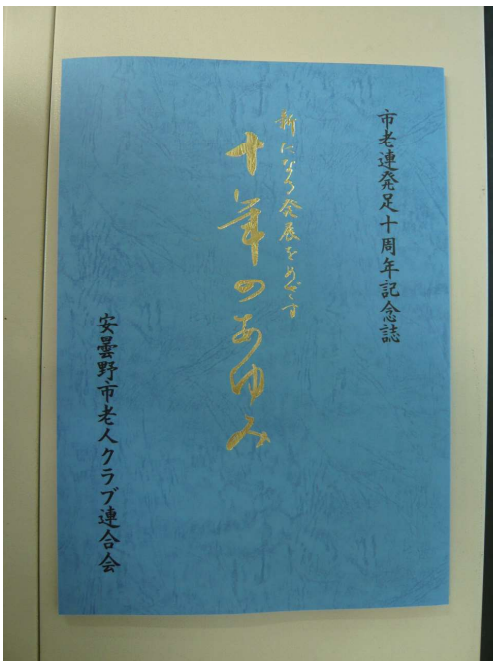 市老連発足十周年記念誌
新たなる発展をめざす
十年のあゆみ
安曇野市老人クラブ連合会